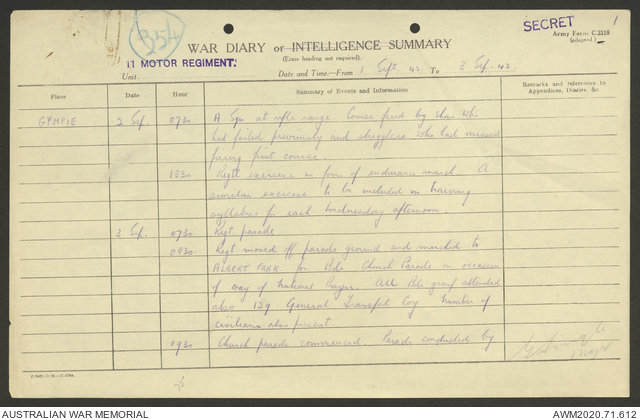 354
SECRET
1
Army Form C.2118
(adapted.)
WAR DIARY or INTELLIGENCE SUMMARY
(Erase heading not required).
11 MOTOR REGIMENT.
Unit
Date and Time—From 1 Sept 42 To 3 Sep. 42.
Place Date Hour Summary of Events and Information Remarks and references to
Appendices, Diaries, &c
GYMPIE 2 Sep. 0730 A Sqn at rifle range. Course fired by those who
had failed previously and stragglers who had missed
firing first course.
1330 Regtl exercise in form of endurance march. A
similar exercise to be included in training
syllabus for each Wednesday afternoon.
3 Sep. 0730 Regt. parade
0830 Regt moved off parade ground and marched to
ALBERT PARK for Bde Church Parade on occasion
of Day of National Prayer. All Bde group attended
also 129 General Transport Coy. Number of
civilians also present
0930 Church parade commenced. Parade conducted by
Major
AUSTRALIAN WAR MEMORIAL
AWM2020.71.612